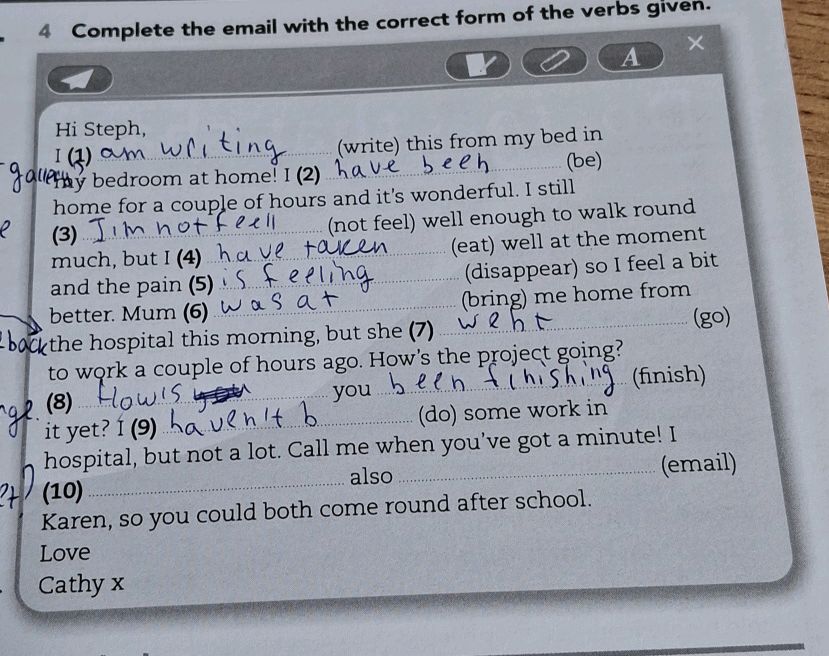 4 Complete the email with the correct form of the verbs given.
A ×
Hi Steph,
I (1) am writing (write) this from my bed in
my bedroom at home! I (2) have been (be)
home for a couple of hours and it's wonderful. I still
(3) I'm not feell (not feel) well enough to walk round
much, but I (4) have taken (eat) well at the moment
and the pain (5) is feeling (disappear) so I feel a bit
better. Mum (6) was at (bring) me home from
back the hospital this morning, but she (7) went (go)
to work a couple of hours ago. How's the project going?
(8) How is you been finishing (finish)
it yet? I (9) haven't b (do) some work in
hospital, but not a lot. Call me when you've got a minute! I
(10) also (email)
Karen, so you could both come round after school.
Love
Cathy x